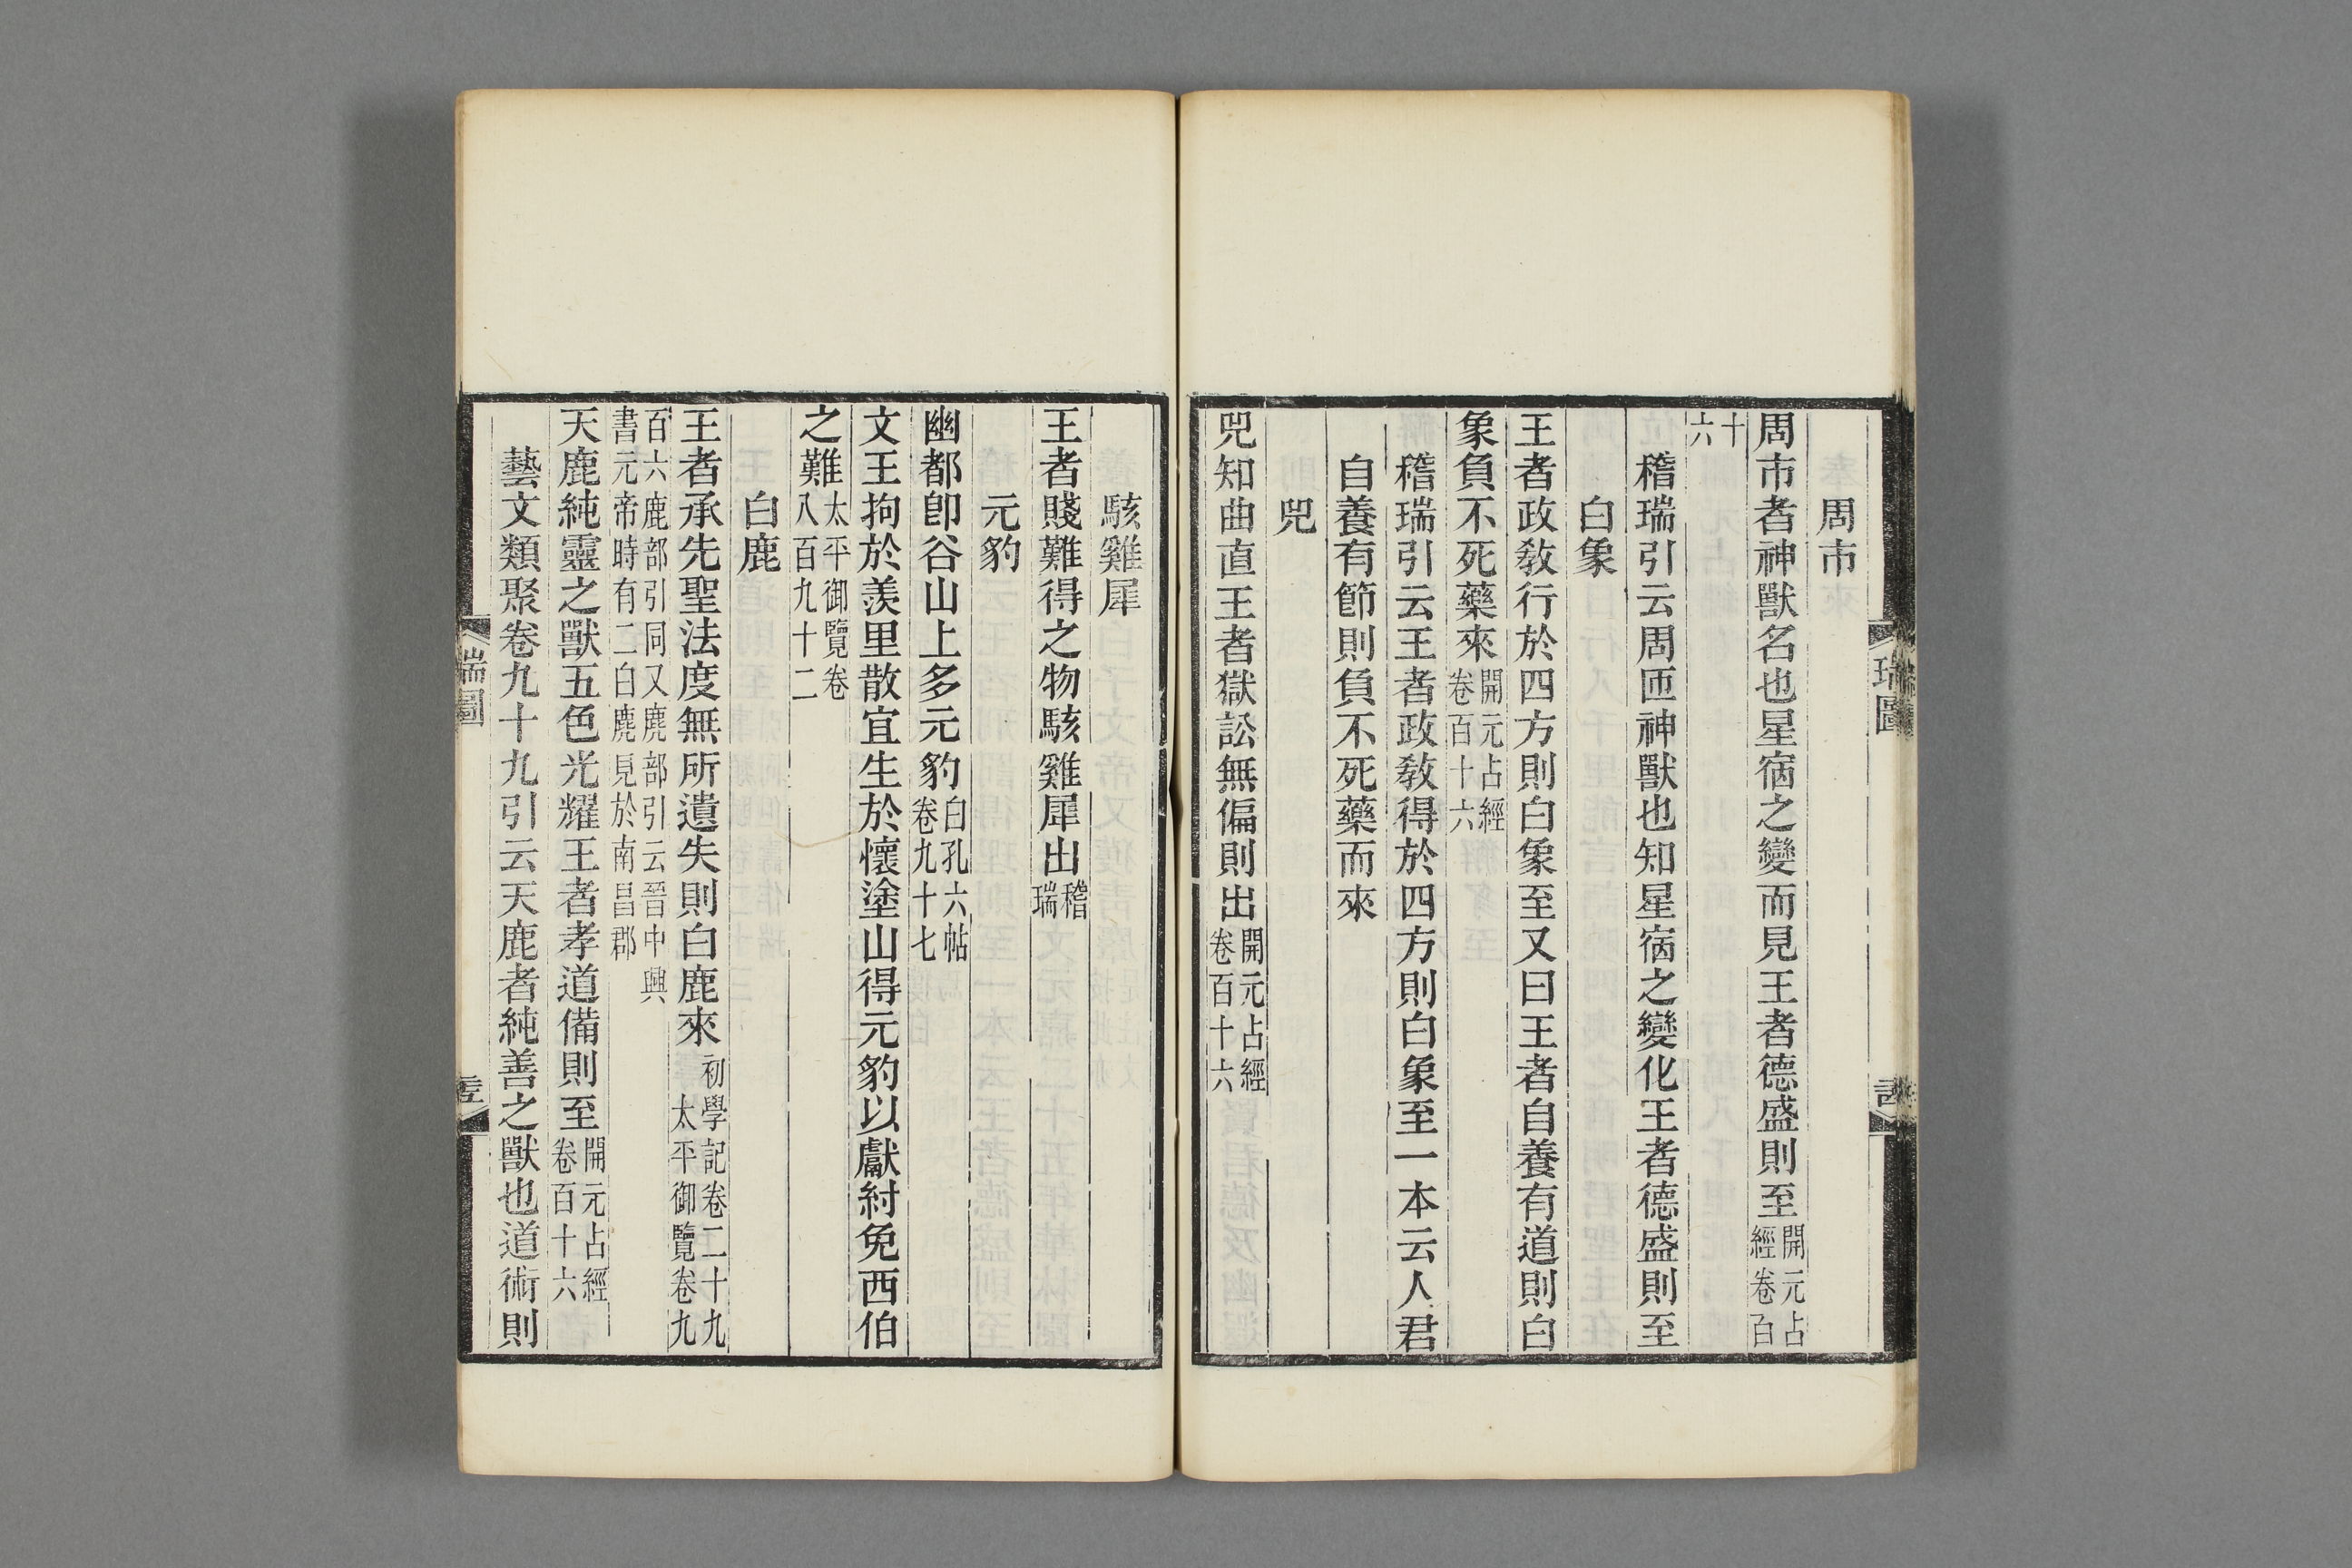 周市
周市者神獸名也星宿之變而見王者德盛則至開元占經卷百
十六
稽瑞引云周匝神獸也知星宿之變化王者德盛則至
白象
王者政敎行於四方則白象至又曰王者自養有道則白
象負不死藥來開元占經卷百十六
稽瑞引云王者政敎得於四方則白象至一本云人君
自養有節則負不死藥而來
兕
兕知曲直王者獄訟無偏則出開元占經卷百十六
駭雞犀
王者賤難得之物駭雞犀出稽瑞
元豹
幽都卽谷山上多元豹白孔六帖卷九十七
文王拘於羨里散宜生於懷塗山得元豹以獻紂免西伯
之難太平御覽卷八百九十二
白鹿
王者承先聖法度無所遺失則白鹿來初學記卷二十九太平御覽卷九
百六鹿部引同又麃部引云晉中興書元帝時有二白麃見於南昌郡
天鹿純靈之獸五色光耀王者孝道備則至開元占經卷百十六
藝文類聚卷九十九引云天鹿者純善之獸也道術則
瑞圖